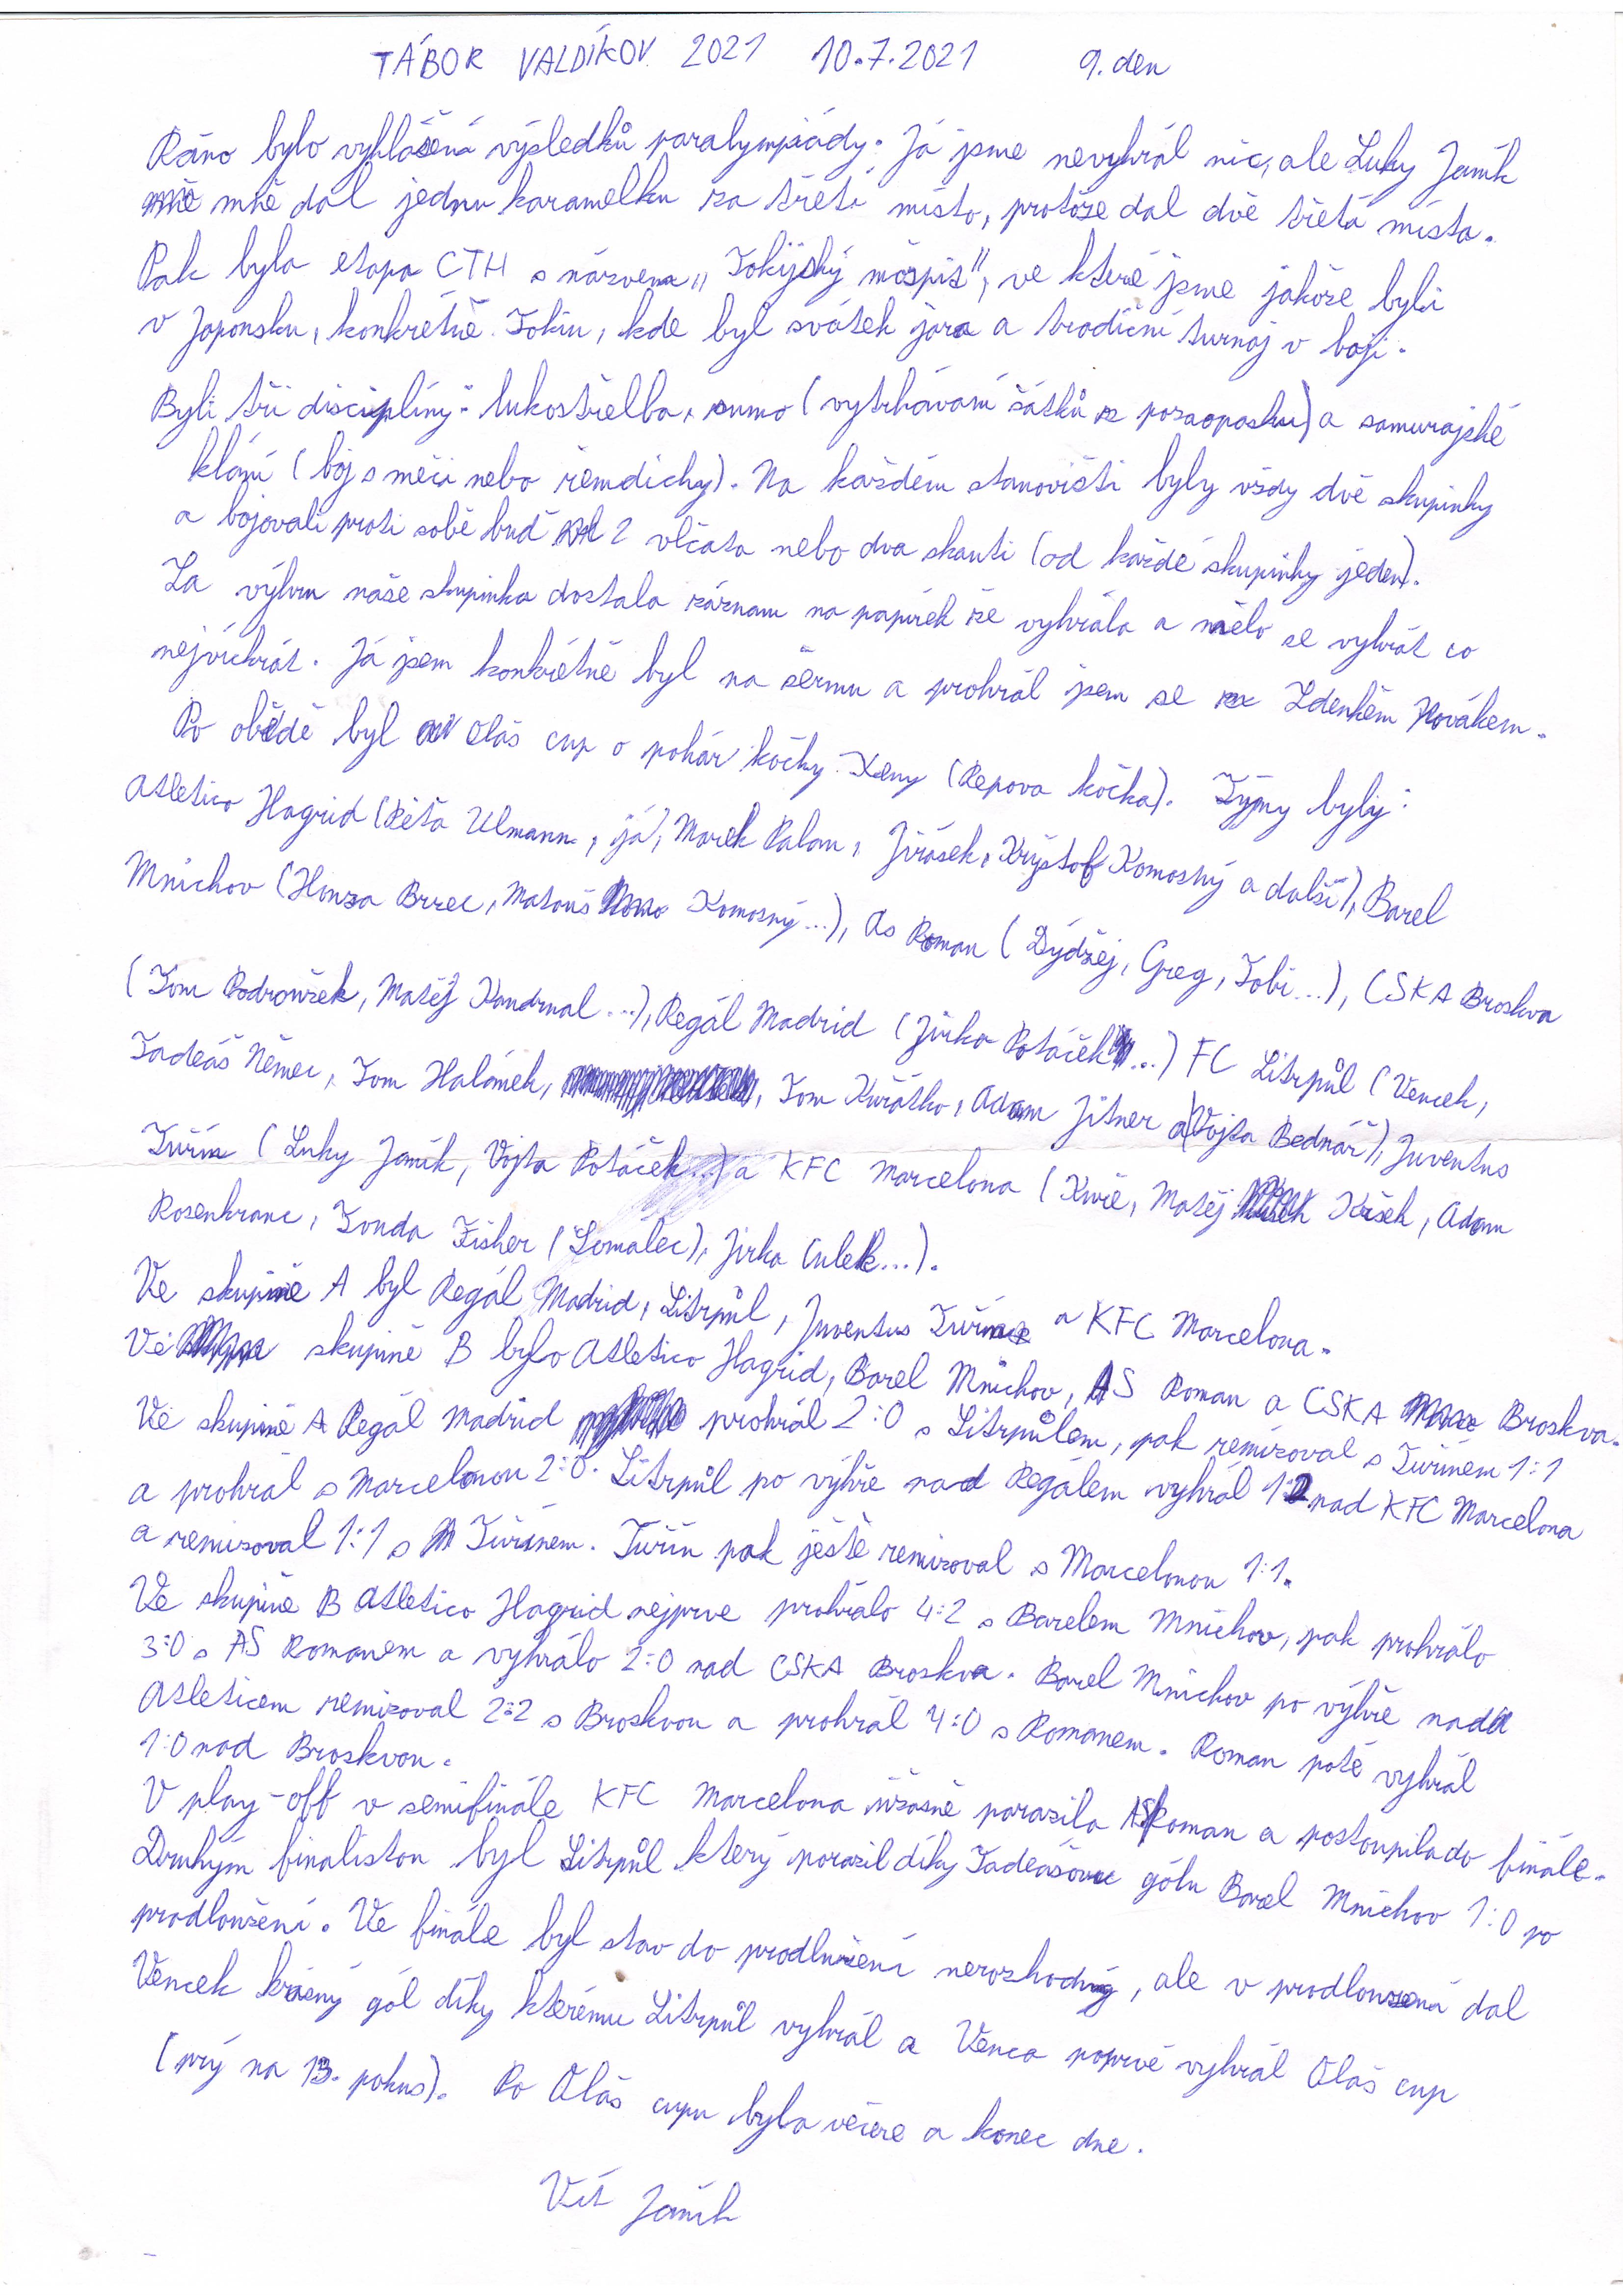 TÁBOR VALDÍKOV 2021 10.7.2021 9. den
Ráno bylo vyhlášená výsledků paralympiády. Já jsme nevyhrál nic, ale Luky Janík
mně dal jednu karamelku za třetí místo, protože dal dvě třetá místa.
Pak byla etapa CTH s názvem „Tokijský mišpit", ve které jsme jakože byli
v Japonsku, konkrétně Tokiu, kde byl svátek jara a tradiční turnaj v boji.
Byli tři disciplíny: lukostřelba, sumo (vytrhávání šátků z pozaopasku) a samurajské
klání (boj s meči nebo řemdichy). Na každém stanovišti byly vždy dvě skupinky
a bojovali proti sobě buď 2 vlčata nebo dva skauti (od každé skupinky jeden).
Za výhru naše skupinka dostala záznam na papírek že vyhrála a mělo se vyhrát co
nejvíckrát. Já jsem konkrétně byl na šermu a prohrál jsem se Zdenkěm Novákem.
Po obědě byl Oláš cup o pohár kočky Xeny (Řepova kočka). Týmy byly:
Atletico Hagrid (Péťa Ulmann, já, Marek Palan, Jirásek, Kryštof Komosný a další), Barel
Mnichov (Honza Brzec, Matouš Komosný...), As Roman (Dýdžej, Greg, Tobi...), CSKA Broskva
(Tom Podroužek, Matěj Kondrnal...), Regál Madrid (Jirka Potáček...) FC Litrpůl (Vencek,
Tadeáš Němec, Tom Halámek, Tom Kuřátko, Adam Jitner a Vojta Bednář), Juventus
Tuřín (Luky Janík, Vojta Potáček...) a KFC Marcelona (Kuře, Matěj Kršek, Adam
Rosenkranc, Tonda Fisher (Lomálec), Jirka Culek...).
Ve skupině A byl Regál Madrid, Litrpůl, Juventus Tuřín a KFC Marcelona.
Ve skupině B bylo Atletico Hagrid, Barel Mnichov, AS Roman a CSKA Broskva.
Ve skupině A Regál Madrid prohrál 2:0 s Litrpůlem, pak remizoval s Tuřínem 1:1
a prohrál s Marcelonou 2:0. Litrpůl po výhře nad Regálem vyhrál 1:0 nad KFC Marcelona
a remizoval 1:1 s Tuřínem. Tuřín pak ještě remizoval s Marcelonou 1:1.
Ve skupině B Atletico Hagrid nejprve prohrálo 4:2 s Barelem Mnichov, pak prohrálo
3:0 s AS Romanem a vyhrálo 2:0 nad CSKA Broskva. Barel Mnichov po výhře nad
Atleticem remizoval 2:2 s Broskvou a prohrál 4:0 s Romanem. Roman poté vyhrál
1:0 nad Broskvou.
V play-off v semifinále KFC Marcelona úžasně porazila AS Roman a postoupila do finále.
Druhým finalistou byl Litrpůl který porazil díky Tadeášovu gólu Barel Mnichov 1:0 po
prodloužení. Ve finále byl stav do prodlužení nerozhodný, ale v prodloužená dal
Vencek krásný gól díky kterému Litrpůl vyhrál a Venca poprvé vyhrál Oláš cup
(prý na 13. pokus). Po Oláš cupu byla večeře a konec dne.
Vít Janík